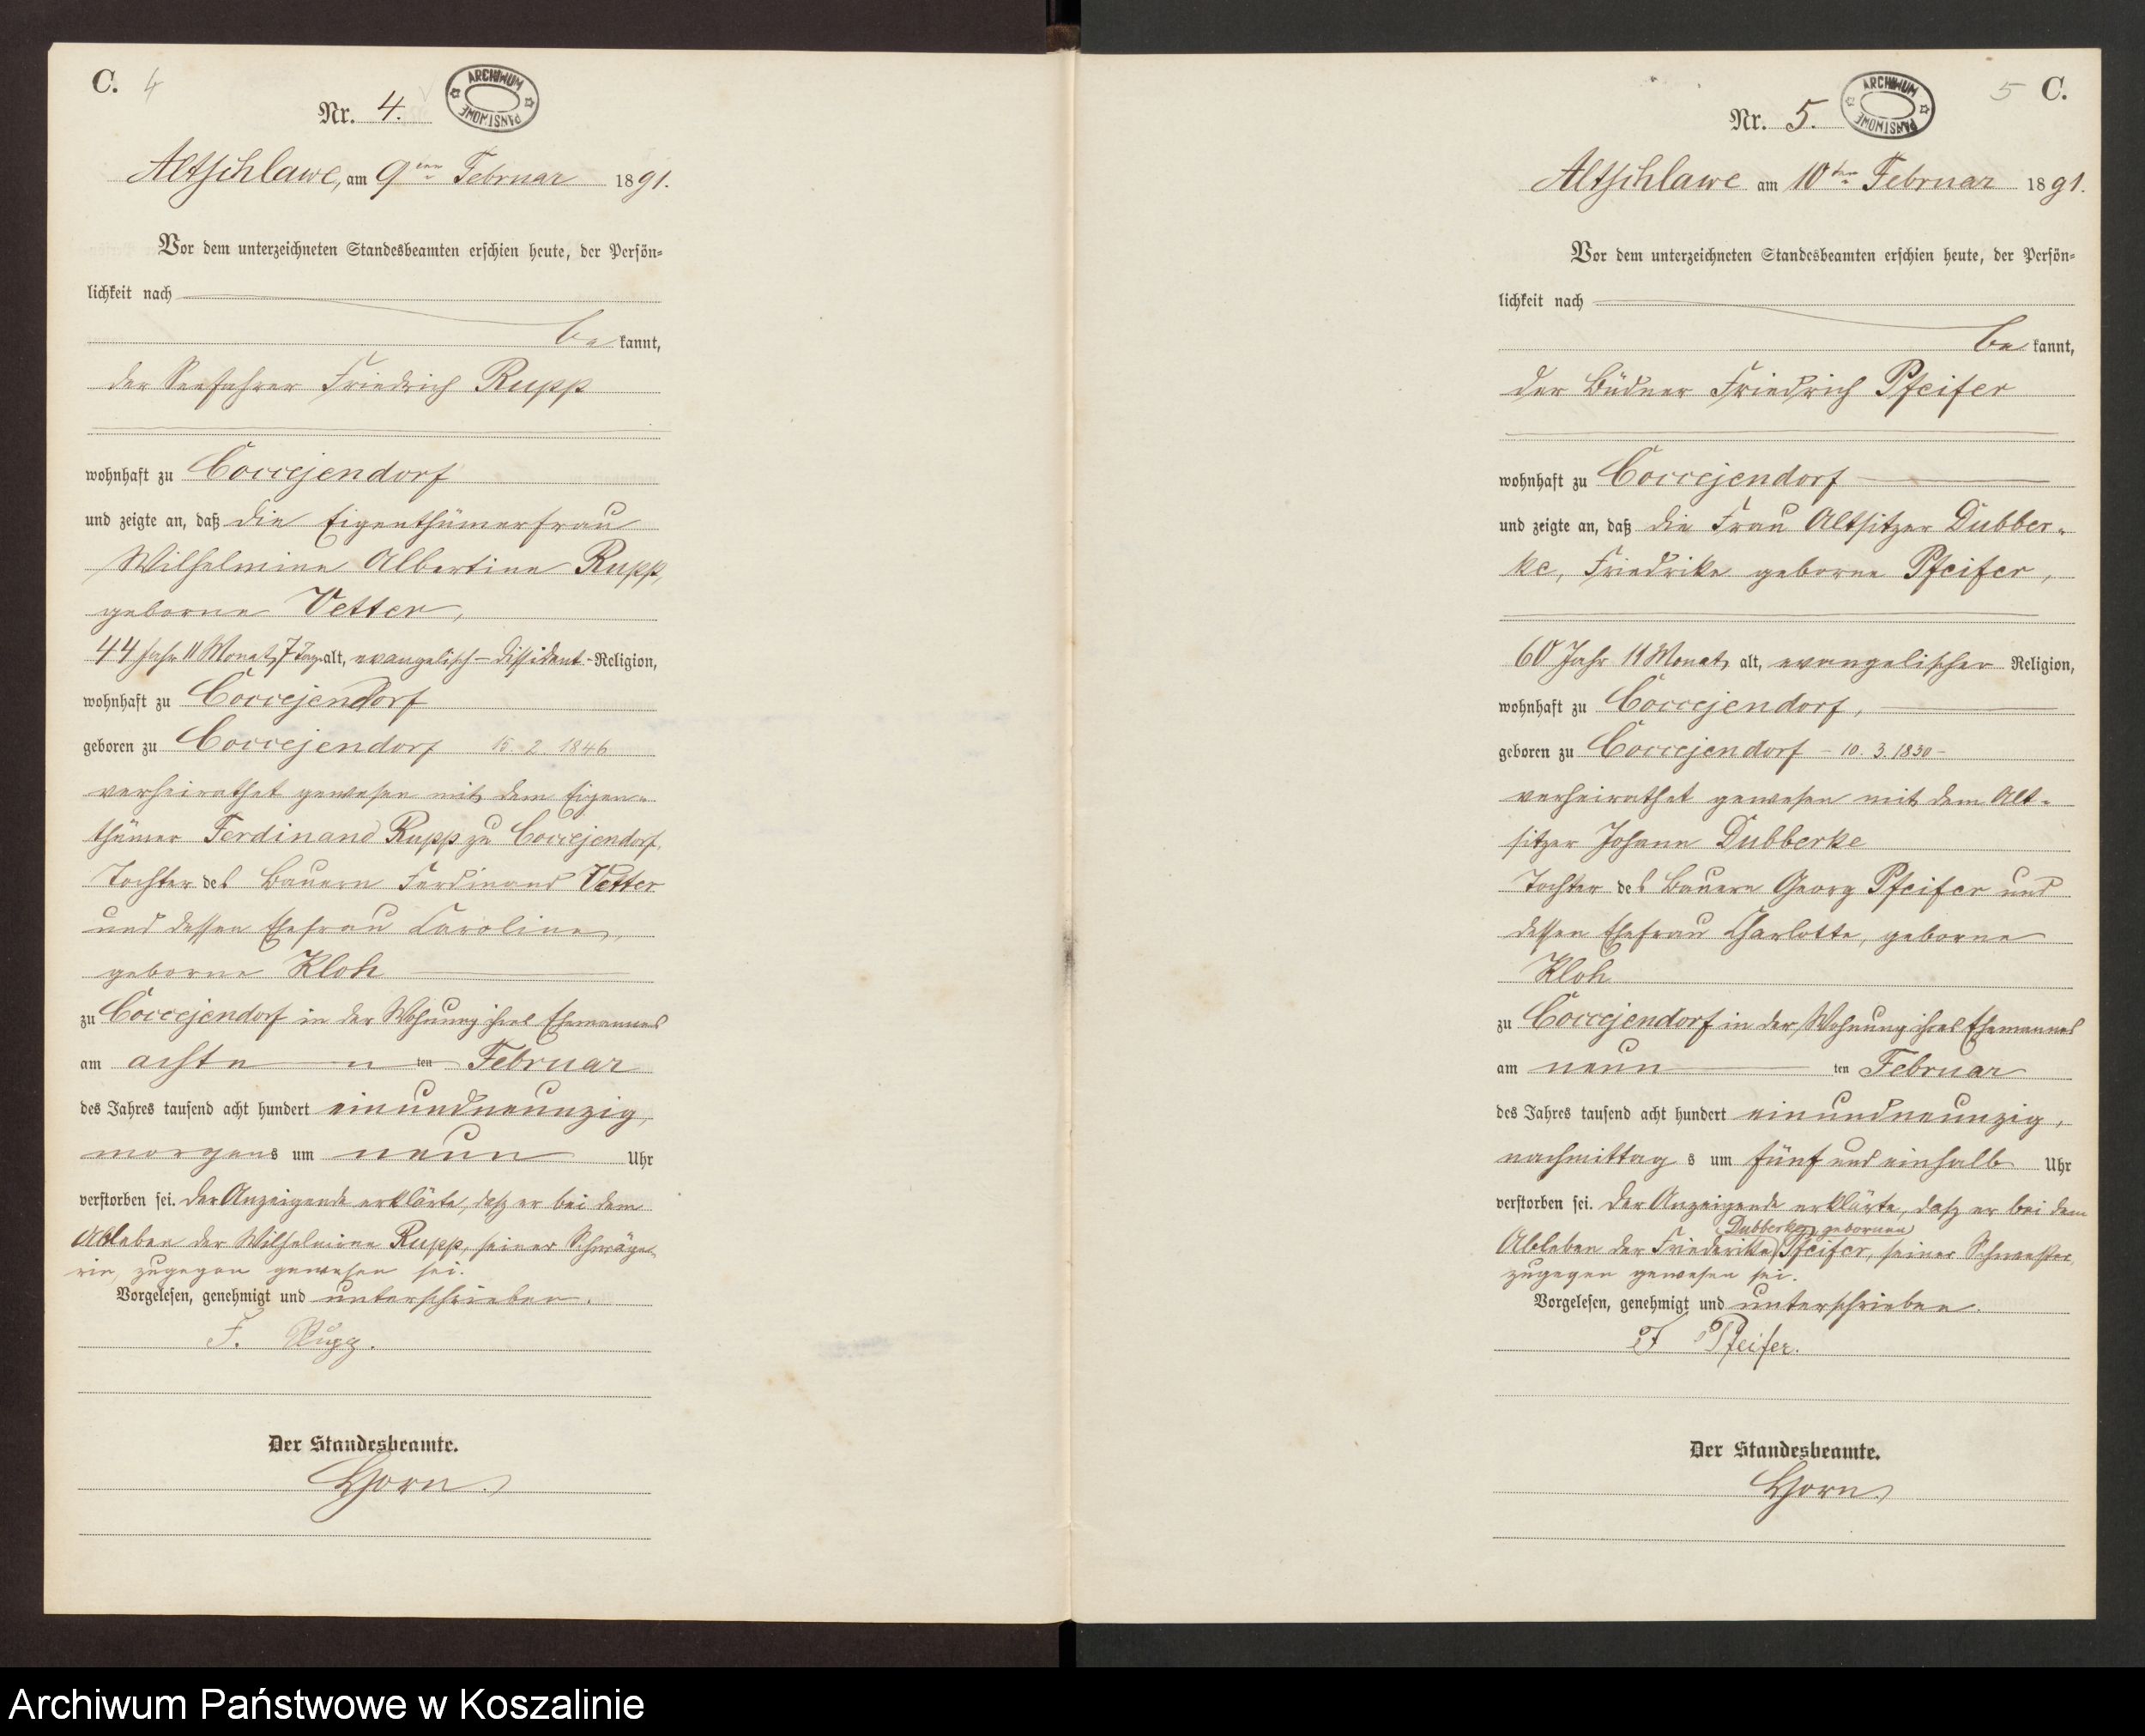 C. 4
Nr. 4.
ARCHIWUM PAŃSTWOWE
Altschlawe, am 9ten Februar 1891.
Vor dem unterzeichneten Standesbeamten erschien heute, der Persön-
lichkeit nach
be kannt,
der Seefahrer Friedrich Rupp
wohnhaft zu Coccejendorf
und zeigte an, daß die Eigenthümerfrau
Wilhelmine Albertine Rupp,
geborne Vetter,
44 Jahr 11 Monat, 7 Tag alt, evangelisch-dissident-Religion,
wohnhaft zu Coccejendorf
geboren zu Coccejendorf 15 2 1846
verheirathet gewesen mit dem Eigen-
thümer Ferdinand Rupp zu Coccejendorf,
Tochter des Bauern Ferdinand Vetter
und dessen Ehefrau Caroline,
geborne Kloh
zu Coccejendorf in der Wohnung ihres Ehemannes
am achte n ten Februar
des Jahres tausend acht hundert einundneunzig,
morgens um neun Uhr
verstorben sei. Der Anzeigende erklärte, daß er bei dem
Ableben der Wilhelmine Rupp, seiner Schwäge-
rin, zugegen gewesen sei.
Vorgelesen, genehmigt und unterschrieben.
F. Rupp.
Der Standesbeamte.
Horn.
5 C.
Nr. 5.
ARCHIWUM PAŃSTWOWE
Altschlawe am 10ten Februar 1891.
Vor dem unterzeichneten Standesbeamten erschien heute, der Persön-
lichkeit nach
be kannt,
der Büdner Friedrich Pfeifer
wohnhaft zu Coccejendorf
und zeigte an, daß die Frau Altsitzer Dubber-
ke, Friedrike geborne Pfeifer,
60 Jahr 11 Monat, alt, evangelischer Religion,
wohnhaft zu Coccejendorf,
geboren zu Coccejendorf - 10. 3. 1830 -
verheirathet gewesen mit dem Alt-
sitzer Johann Dubberke
Tochter des Bauern Georg Pfeifer und
dessen Ehefrau Charlotte, geborne
Kloh
zu Coccejendorf in der Wohnung ihres Ehemannes
am neun ten Februar
des Jahres tausend acht hundert einundneunzig,
nachmittag s um fünf und einhalb Uhr
verstorben sei. Der Anzeigende erklärte, daß er bei dem
Dubberke, gebornen
Ableben der Friederike Pfeifer, seiner Schwester,
zugegen gewesen sei.
Vorgelesen, genehmigt und unterschrieben.
F Pfeifer.
Der Standesbeamte.
Horn.
Archiwum Państwowe w Koszalinie